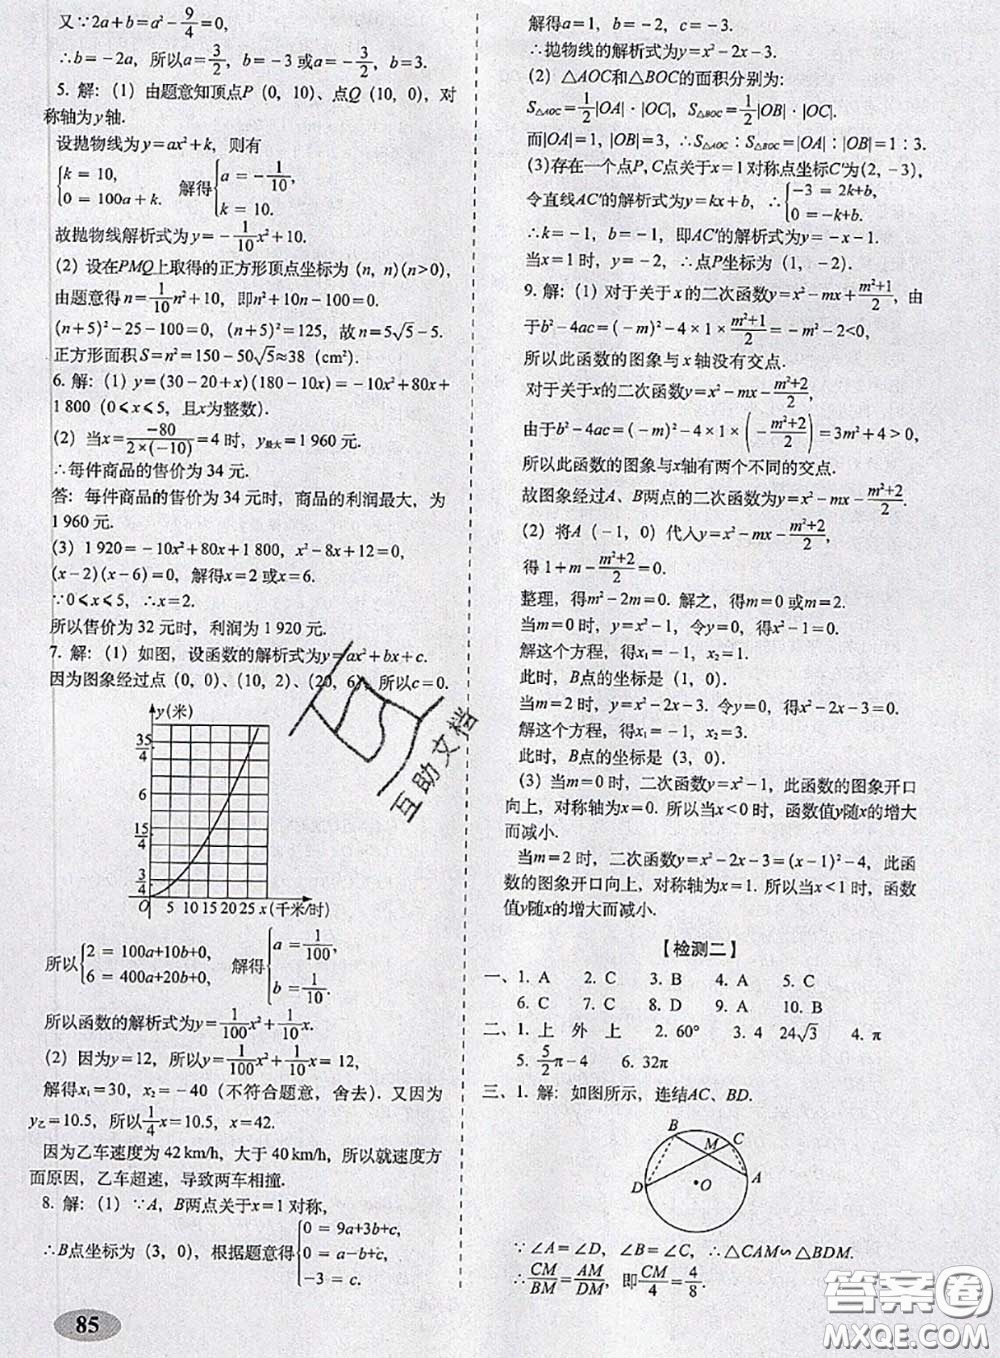 又∵2a+b=a²-9/4=0,
∴b=-2a, 所以a=3/2, b=-3 或a=-3/2, b=3.
5. 解: (1) 由题意知顶点P (0, 10)、点Q (10, 0), 对
称轴为y轴.
设抛物线为y=ax²+k, 则有
{k=10, 0=100a+k. 解得{a=-1/10, k=10.
故抛物线解析式为y=-1/10x²+10.
(2) 设在PMQ上取得的正方形顶点坐标为 (n, n)(n>0),
由题意得n=1/10n²+10, 即n²+10n-100=0,
(n+5)²-25-100=0, (n+5)²=125, 故n=5√5-5.
正方形面积S=n²=150-50√5≈38 (cm²).
6. 解: (1) y=(30-20+x)(180-10x)=-10x²+80x+
1 800 (0⩽x⩽5, 且x为整数).
(2) 当x=-80/2×(-10)=4时, y最大=1 960元.
∴每件商品的售价为 34 元.
答: 每件商品的售价为 34 元时, 商品的利润最大, 为
1 960 元.
(3) 1 920=-10x²+80x+1 800, x²-8x+12=0,
(x-2)(x-6)=0, 解得x=2 或x=6.
∵0⩽x⩽5, ∴x=2.
所以售价为 32 元时, 利润为 1 920 元.
7. 解: (1) 如图, 设函数的解析式为y=ax²+bx+c.
因为图象经过点 (0, 0)、(10, 2)、(20, 6), 所以c=0.
y(米)
35/4
6
15/4
3/4
O 5 10 15 20 25 x(千米/时)
所以{2=100a+10b+0, 6=400a+20b+0, 解得{a=1/100, b=1/10.
所以函数的解析式为y=1/100x²+1/10x.
(2) 因为y=12, 所以y=1/100x²+1/10x=12,
解得x₁=30, x₂=-40 (不符合题意, 舍去). 又因为
y乙=10.5, 所以1/4x=10.5, x=42.
因为乙车速度为 42 km/h, 大于 40 km/h, 所以就速度方
面原因, 乙车超速, 导致两车相撞.
8. 解: (1) ∵A, B两点关于x=1 对称,
∴B点坐标为 (3, 0), 根据题意得{0=9a+3b+c, 0=a-b+c, -3=c.
85
解得a=1, b=-2, c=-3.
∴抛物线的解析式为y=x²-2x-3.
(2) △AOC和△BOC的面积分别为:
S△AOC=1/2|OA|·|OC|, S△BOC=1/2|OB|·|OC|.
而|OA|=1, |OB|=3, ∴S△AOC∶S△BOC=|OA|∶|OB|=1∶3.
(3)存在一个点P, C点关于x=1对称点坐标C′为(2, -3),
令直线AC′的解析式为y=kx+b, ∴{-3=2k+b, 0=-k+b.
∴k=-1, b=-1, 即AC′的解析式为y=-x-1.
当x=1时, y=-2, ∴点P坐标为 (1, -2).
9. 解: (1) 对于关于x的二次函数y=x²-mx+m²+1/2, 由
于b²-4ac=(-m)²-4×1×m²+1/2=-m²-2<0,
所以此函数的图象与x轴没有交点.
对于关于x的二次函数y=x²-mx-m²+2/2,
由于b²-4ac=(-m)²-4×1×(-m²+2/2)=3m²+4>0,
所以此函数的图象与x轴有两个不同的交点.
故图象经过A、B两点的二次函数为y=x²-mx-m²+2/2.
(2) 将A (-1, 0) 代入y=x²-mx-m²+2/2,
得 1+m-m²+2/2=0.
整理, 得m²-2m=0. 解之, 得m=0 或m=2.
当m=0 时, y=x²-1, 令y=0, 得x²-1=0.
解这个方程, 得x₁=-1, x₂=1.
此时, B点的坐标是 (1, 0).
当m=2 时, y=x²-2x-3. 令y=0, 得x²-2x-3=0.
解这个方程, 得x₁=-1, x₂=3.
此时, B点的坐标是 (3, 0).
(3) 当m=0 时, 二次函数y=x²-1, 此函数的图象开口
向上, 对称轴为x=0. 所以当x<0 时, 函数值y随x的增大
而减小.
当m=2 时, 二次函数y=x²-2x-3=(x-1)²-4, 此函
数的图象开口向上, 对称轴为x=1. 所以当x<1 时, 函数
值y随x的增大而减小.
【检测二】
一、1. A 2. C 3. B 4. A 5. C
6. C 7. C 8. D 9. A 10. B
二、1. 上 外 上 2. 60° 3. 4 24√3 4. π
5. 5/2π-4 6. 32π
三、1. 解: 如图所示, 连结AC、BD.
B M C D A O
∵∠A=∠D, ∠B=∠C, ∴△CAM∽△BDM.
∴CM/BM=AM/DM, 即CM/4=4/8.
互助文档
答案圈
MXQE.COM